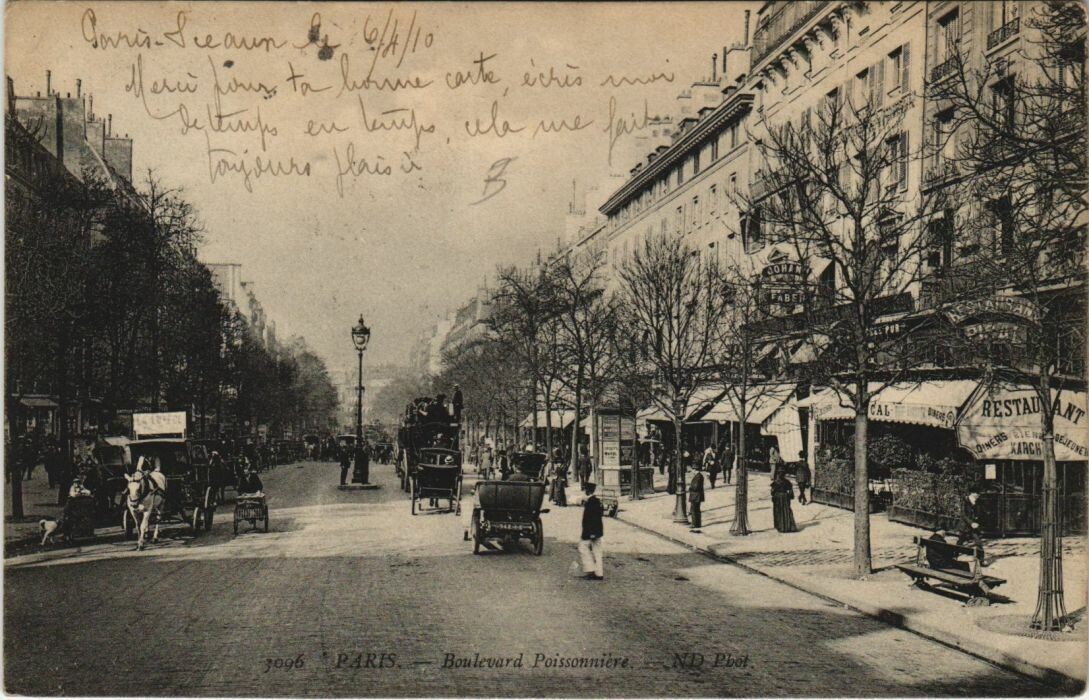 Paris-Sceaux le 6/4/10
Merci pour ta bonne carte, écris moi
de temps en temps, cela me fait
toujours plaisir
JOHANN
FABER
CAL DINERS
RESTAURANT
DINERS DEJEUN
KARCH
3096 PARIS. — Boulevard Poissonnière. — ND Phot.